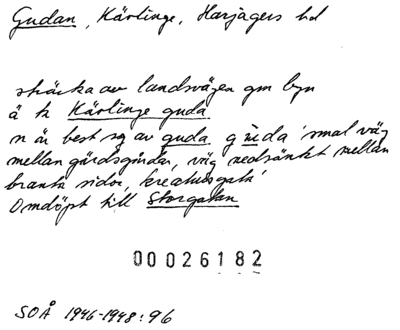 Gudan, Kävlinge, Harjagers hd
sträcka av landsvägen gm byn
ä k Kävlinge guda
n är best sg av guda, g 'smal väg
mellan gärdsgårdar, väg nedsänkt mellan
branta sidor, kreatursgata'
Omdöpt till Storgatan
00026182
SOÅ 1946-1948:96